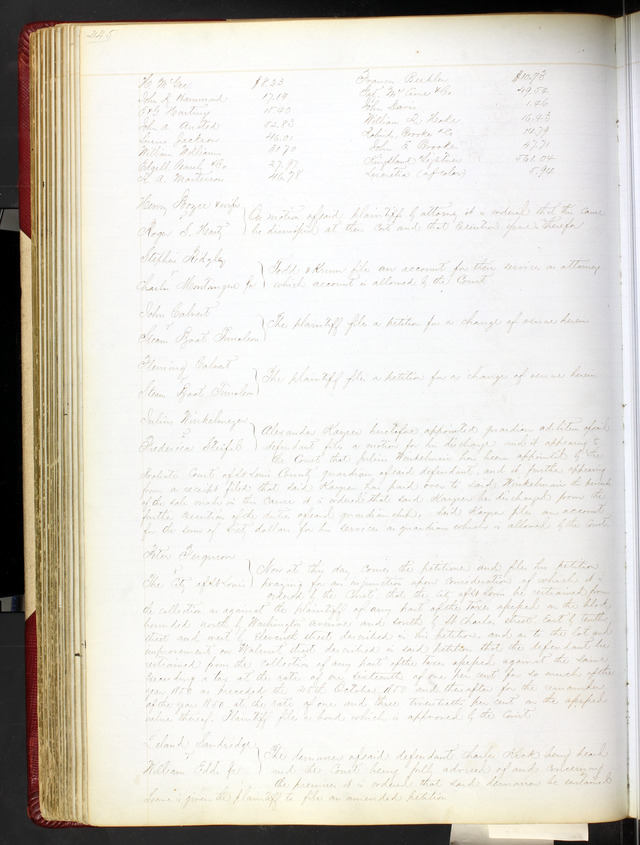 245
H. McGee $8.23
John R Hammond 17.19
15.40
John A. Austed 52.83
Jackson 46.01
William Williams 51.70
27.97
A. Masterson 46.78
Francis Beehler $10.73
49.54
John Davis 1.46
William D. Neale 16.43
Brooke &Co 14.79
John E Brooke 47.71
Kingsland & Lightner 561.04
Lucretia 5.94
Henry & wife
vs
Roger S.
On motion of said plaintiff by attorney it is ordered that this cause
be dismissed at their cost and that execution issue therefor
Stephen Ridgley
vs
Charles Montague Jr
Todd & Krum file an account for their services as attorney
which account is allowed by the Court
John Calvert
vs
Steam Boat Timoleon
The plaintiff files a petition for a change of venue herein
Fleming Calvert
vs
Steam Boat Timoleon
The plaintiff files a petition for a change of venue herein
Julius Winkelmeyer
vs
Fredericka Stifel
Alexander Kayser heretofore appointed guardian ad litem of said
defendant files a motion for his discharge and it appearing to
the Court that Julius Winkelmeier has been appointed by the
Probate Court of St Louis County guardian of said defendant, and it further appearing
from a receipt filed that said Kayser has paid over to said Winkelmeier the proceeds
of the sale made in this cause it is ordered that said Kayser be discharged from the
further execution of the duties of said guardianship, said Kayser files an account
for the sum of sixty dollars for his services as guardian which is allowed by the Court
Peter Ferguson
vs
The City of St Louis
Now at this day comes the petitioner and files his petition
praying for an injunction upon consideration of which it is
ordered by the Court that the City of St Louis be restrained from
the collection as against the plaintiff of any part of the taxes assessed on the block
bounded north by Washington Avenue and south by St Charles street East by tenth
street and west by Eleventh street described in his petition and as to the lot and
improvement on Walnut street described in said petition that the defendant be
restrained from the collection of any part of the taxes assessed against the same
exceeding a tax at the rate of one sixteenth of one per cent for so much of the
year 1850 as preceded the October 1850 and thereafter for the remainder
of the year 1850 at the rate of one and three twentieths per cent on the assessed
value thereof. Plaintiff files a bond which is approved by the Court
Leland Sandridge
vs
William Eddi Jr
The demurrer of said defendant Charles Kleok being heard
and the Court being fully advised of and concerning
the premises it is ordered that said demurrer be sustained
Leave is given the plaintiff to file an amended petition